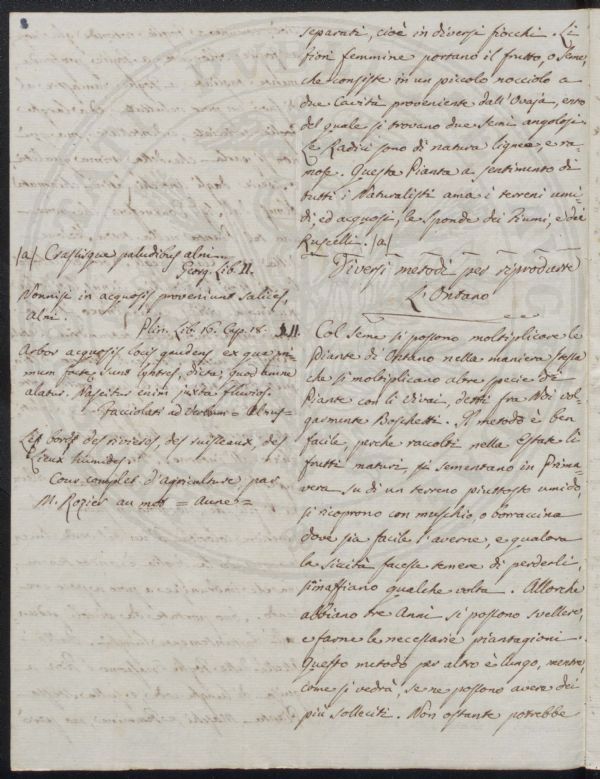 separati, cioè in diversi fiocchi. Li
fiori femmine portano il frutto, o Seme,
che consiste in un piccolo nocciolo a
due Cavità proveniente dall'Ovaja, entro
del quale si trovano due Semi angolosi
Le Radici sono di natura lignea e ra-
mose. Questa Pianta a sentimento di
tutti i Naturalisti ama i terreni umi-
di ed acquosi, le sponde dei Fiumi, e dei
Ruscelli. (a)
Diversi metodi per riprodurre
L'Ontano
§. II. Col Seme si possono moltiplicare le
Piante di Ontano nella maniera stessa
che si moltiplicano altre specie di
Piante con li Vivai, detti fra Noi vol-
garmente Boschetti. Il metodo è ben
facile, perche raccolti nella Estate li
frutti maturi si sementano in Prima-
vera su di un terreno piuttosto umido,
si ricoprono con muschio, o borraccina
dove sia facile l'averne, e qualora
la siccità facesse temere di perderli,
s'inaffiano qualche volta. Allorche
abbiano tre Anni si possono svellere,
e farne le necessarie piantagioni.
Questo metodo per altro è lungo, mentre
come si vedrà, se ne possono avere dei
più solleciti. Non ostante potrebbe
(a) Crassisque paludibus alni
Georg. Lib. II.
Nonnisi in acquosis proveniunt salices,
alni.
Plin. Lib. 16. Cap. 18.
Arbor acquosis locis gaudens ex qua pri-
mum factæ sunt lyntres, dicta, quod amne
alatur. Nascitur enim juxta fluvios.
Facciolati ad Verbum = Alnus =
Les bords des rivieres, des ruisseaux, des
Lieux humides.
Cour complet d'agriculture par
M. Rozier au mot = Aune =